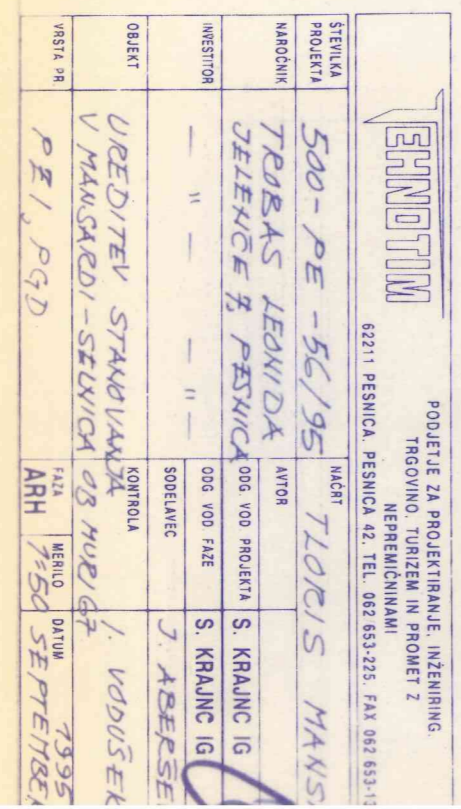 TEHNOTIM
PODJETJE ZA PROJEKTIRANJE, INŽENIRING,
TRGOVINO, TURIZEM IN PROMET Z
NEPREMIČNINAMI
62211 PESNICA, PESNICA 42, TEL. 062 653-225, FAX 062 653-1
ŠTEVILKA PROJEKTA 500-PE-56/95
NAČRT TLORIS MANS
NAROČNIK TROBAS LEONIDA
JELENČE 7, PESNICA
AVTOR
ODG. VOD. PROJEKTA S. KRAJNC IG
INVESTITOR — " — — " —
ODG. VOD. FAZE S. KRAJNC IG
SODELAVEC J. ABERŠE
OBJEKT UREDITEV STANOVANJA
V MANSARDI - SELNICA OB MURI 67
KONTROLA I. VODUŠEK
VRSTA PR. PZI, PGD
FAZA ARH
MERILO 1:50
DATUM 1995
SEPTEMBE